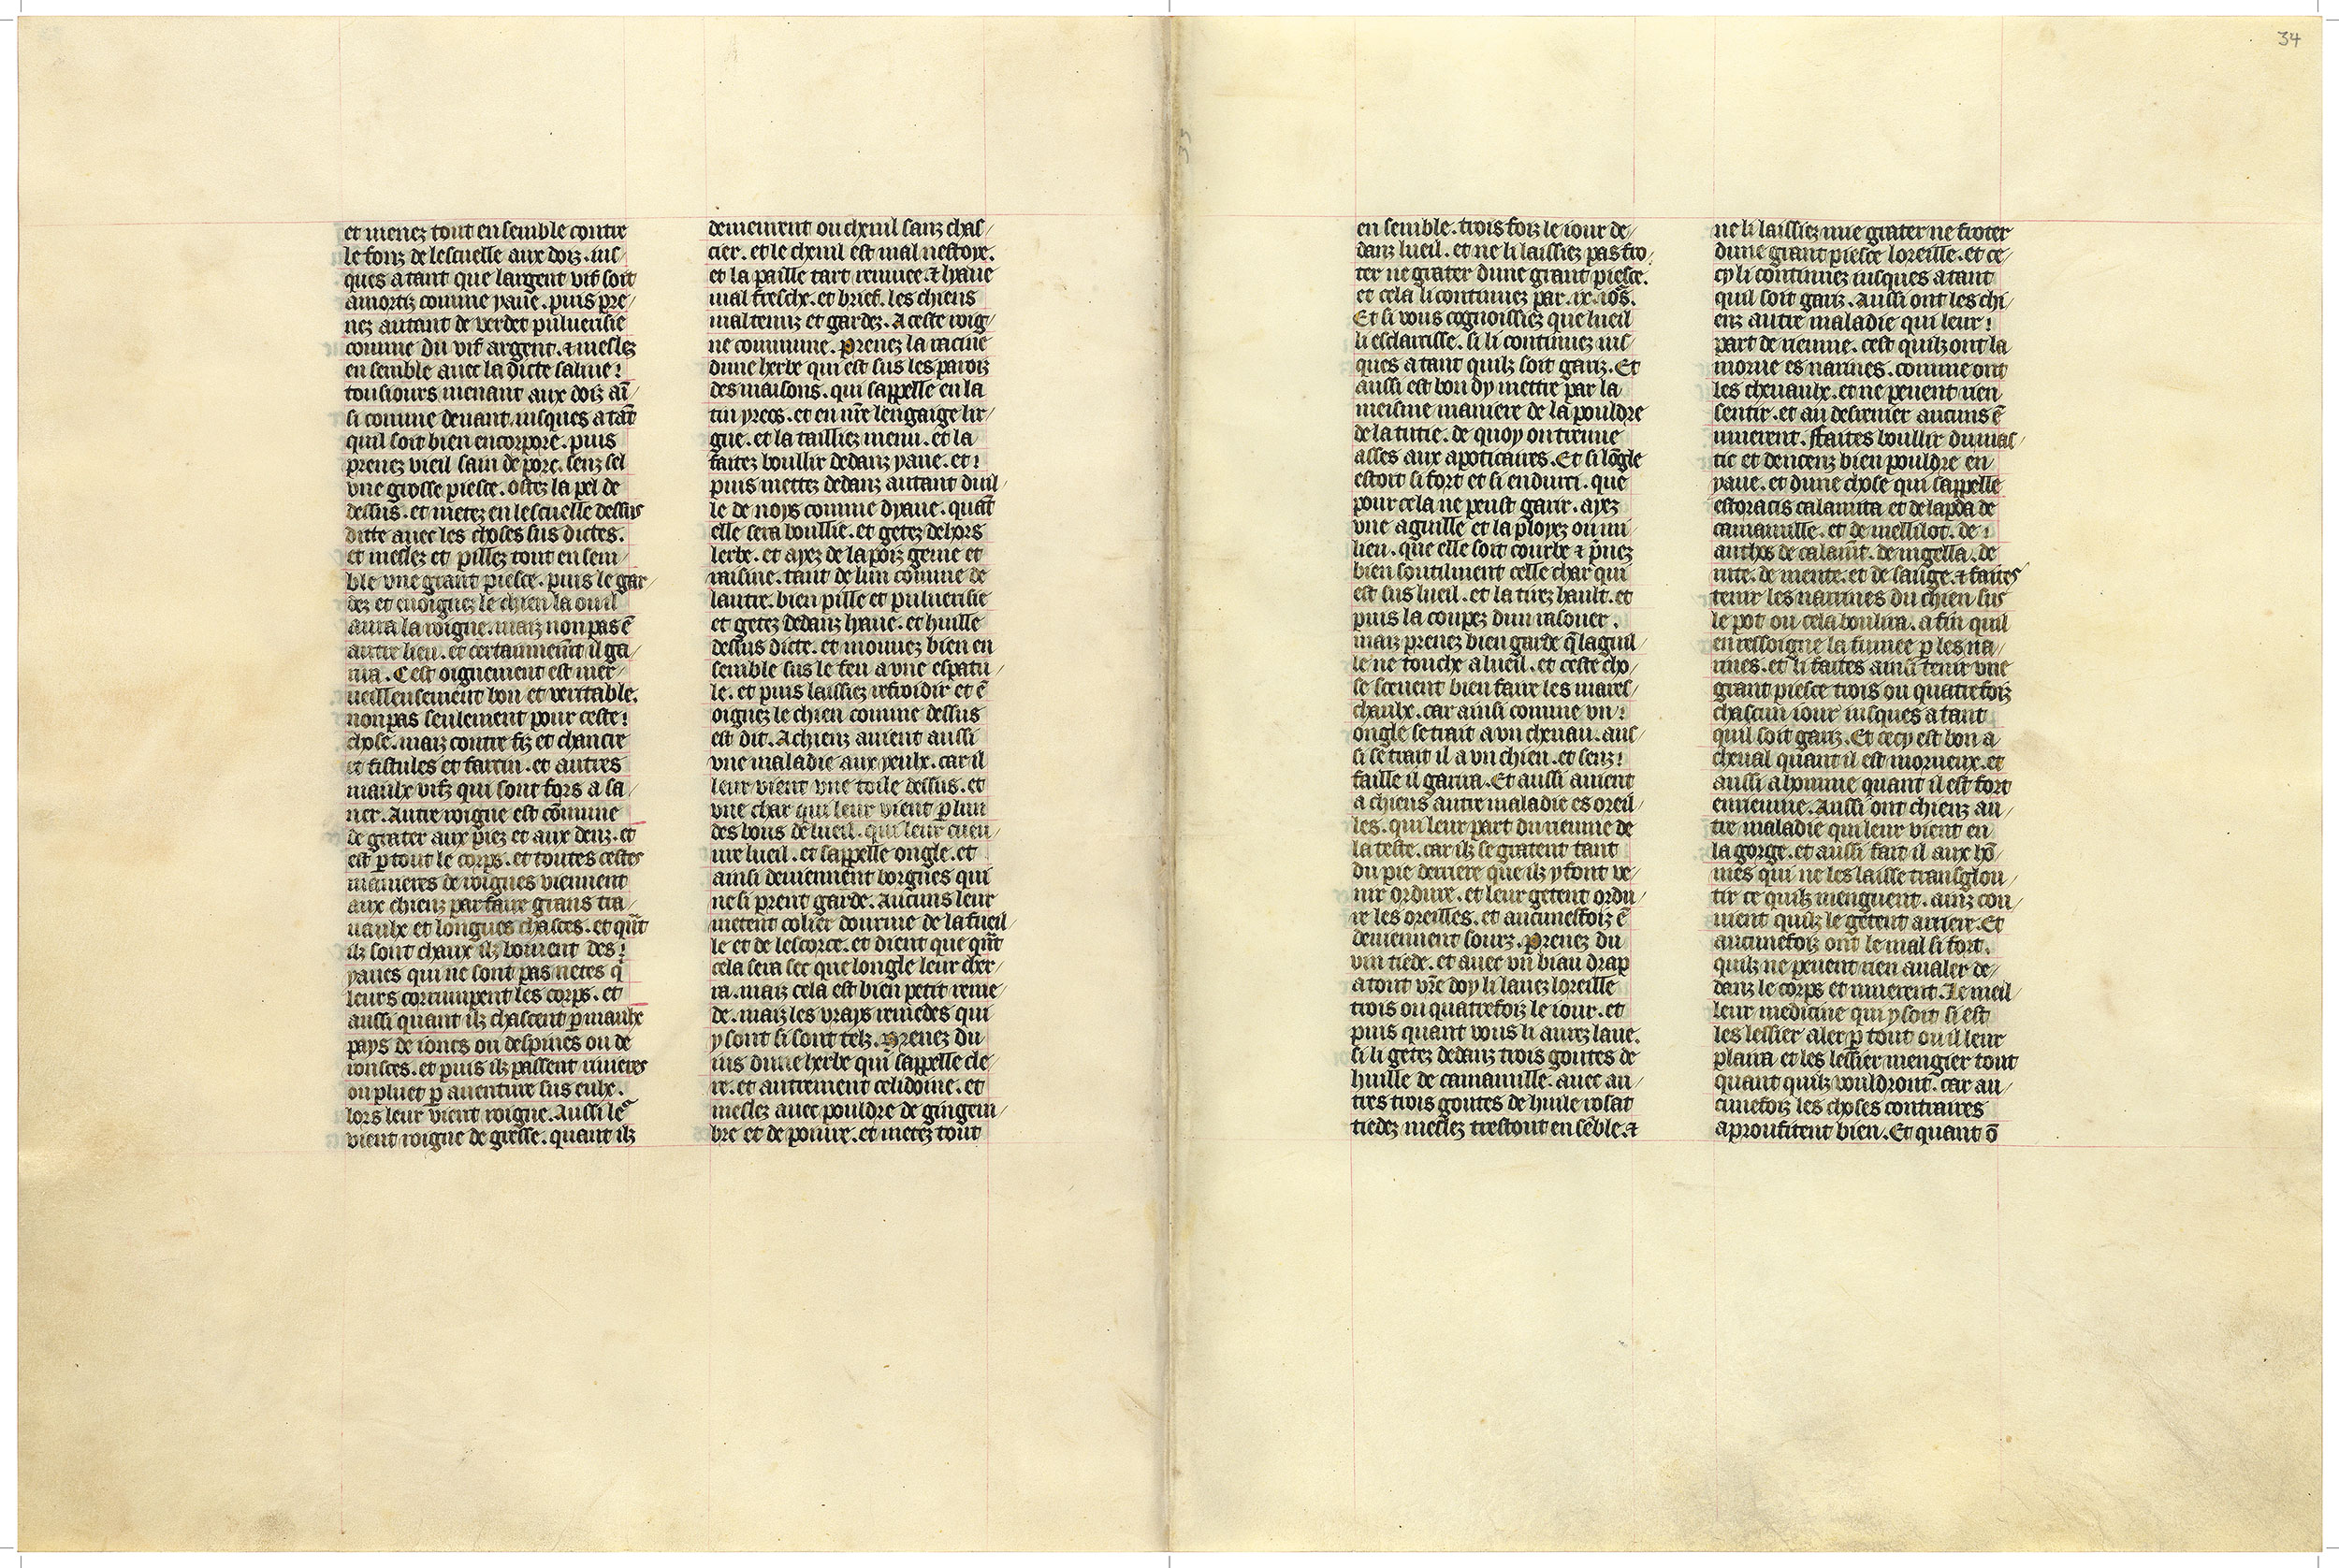 et menez tout en semble contre
le fons de lescuelle aux doiz. ius/
ques a tant que largent vif soit
amortiz comme yaue. puis pre/
nez autant de verdet puluerisie
comme du vif argent. ⁊ meslez
en semble auec la dicte saliue!
tousiours menant aux doiz aī/
si comme deuant iusques a tāt
quil soit bien encorpore. puis
prenez vieil sain de porc. senz sel
vne grosse piesce. ostez la pel de
dessus. et metez en lescuelle dessus
ditte auec les choses sus dictes.
et meslez et pillez tout en sem/
ble vne grant piesce. puis le gar/
dez et enoignez le chien la ou il
aura la roigne. maiz non pas ē
autre lieu. et certainemēt il ga/
rira. Cest oignement est mer/
ueilleusement bon et veritable.
non pas seulement pour ceste!
chose. maiz contre fiz et chancre
et fistules et farcin. et autres
maulx vifz qui sont fors a sa/
ner. Autre roigne est cōmune
de grater aux piez et aux denz. et
est ꝑ tout le corps. et toutes cestes
manieres de roignes viennent
aux chienz par faire grans tra/
uaulx et longues chasces. et qūt
ilz sont chaux ilz boiuent des!
yaues qui ne sont pas netes q̄
leurs corrumpent les corps. et
aussi quant ilz chascent ꝑ maulx
pays de ioncs ou despines ou de
ronsces. et puis ilz passent riuieres
ou pluet ꝑ auenture sus eulx.
lors leur vient roigne. Aussi leͬ
vient roigne de gresse. quant ilz
demeurent ou chenil sanz chas/
cier. et le chenil est mal nestoye.
et la paille tart remuee. ⁊ lyaue
mal fresche. et brief. les chiens
mal tenuz et gardez. A ceste roig/
ne commune. Prenez la racine
dune herbe qui est sus les paroiz
des maisons. qui sappelle en la
tin yreos. et en nr̄e lengaige lir/
gue. et la tailliez menu. et la
faitez boullir dedanz yaue. et!
puis mettez dedanz autant duil/
le de noys comme dyaue. quāt
elle sera boullie. et getez dehors
lerbe. et ayez de la poiz gerne et
raisine. tant de lun comme de
lautre. bien pille et puluerisie
et getez dedanz lyaue. et huille
dessus dicte. et mouuez bien en
semble sus le feu a vne espatu/
le. et puis laissiez refroidir et ē
oignez le chien comme dessus
est dit. A chienz auient aussi
vne maladie aux yeulx. car il
leur vient vne toile dessus. et
vne char qui leur vient ꝑ lun
des bous de lueil. qui leur cueu/
ure lueil. et sappelle ongle. et
ainsi deuiennent borgnes qui
ne si prent garde. Aucuns leur
metent colier dourme de la fueil/
le et de lescorce. et dient que qūt
cela sera sec que longle leur cher/
ra. maiz cela est bien petit reme/
de. maiz les vrays remedes qui
y sont si sont telz. Prenez du
ius dune herbe qui sappelle cle/
re. et autrement celidoine. et
meslez auec pouldre de gingem/
bre et de poiure. et metez tout
en semble. trois foiz le iour de/
danz lueil. et ne li laissiez pas fro/
ter ne grater dune grant piesce.
et cela li continuez par .ix. iōs.
Et si vous cognoissiez que lueil
li esclarcisse. si li continuez ius/
ques a tant quilz soit gariz. Et
aussi est bon dy mettre par la
meisme maniere de la pouldre
de la tutie. de quoy on treuue
asses aux apoticaires. Et si lōgle
estoit si fort et si endurci. que
pour cela ne peust garir. ayez
vne aguille et la ployez ou mi
lieu. que elle soit courbe ⁊ p̄nez
bien soutilment celle char qui
est sus lueil. et la tirez hault. et
puis la coupez dun rasouer.
maiz prenez bien garde q̄ laguil/
le ne touche a lueil. et ceste cho/
se sceuent bien faire les mares/
chaulx. car ainsi comme vn!
ongle se trait a vn cheuau. aus/
si se trait il a vn chien. et senz!
faille il garira. Et aussi auient
a chiens autre maladie es oreil/
les. qui leur part du rieume de
la teste. car ilz se gratent tant
du pie derriere que ilz y font ve/
nir ordure. et leur getent ordu/
re les oreilles. et aucunesfoiz ē
deuiennent sours. Prenez du
vin tiede. et auec vn biau drap
a tout vr̄e doy li lauez loreille
trois ou quatrefoiz le iour. et
puis quant vous li aurez laue.
si li getez dedanz trois goutes de
huille de camamille. auec au/
tres trois goutes de huile rosat
tiedez meslez trestout en sēble. ⁊
ne li laissiez mie grater ne froter
dune grant piesce loreille. et ce/
cy li continuez iusques a tant
quil soit gariz. Aussi ont les chi/
enz autre maladie qui leur!
part de rieume. cest quilz ont la
morue es narines. comme ont
les cheuaulx. et ne peuent rien
sentir. et au desrenier aucuns ē
muerent. Faites boullir du mas/
tic et dencenz bien pouldre en
yaue. et dune chose qui sappelle
estoracis calamita et de lapda de
camamille. et de mellilot. de!
anthos de calamt̄. de nigella. de
rute. de mente. et de sauge. ⁊ faites
tenir les narrines du chien sus
le pot ou cela boulira. a fin quil
en ressoigne la fumee ꝑ les na/
rines. et li faites ainsi tenir vne
grant piesce trois ou quatre foiz
chascun iour iusques a tant
quil soit gariz. Et cecy est bon a
cheual quant il est morueux. et
aussi a homme quant il est fort
enrieume. Aussi ont chienz au/
tre maladie qui leur vient en
la gorge. et aussi fait il aux hō/
mes qui ne les laisse transglou/
tir ce quilz menguent. ainz con/
uient quilz le getent arriere. Et
aucunefoiz ont le mal si fort.
quilz ne peuent rien aualer de/
danz le corps et muerent. Le meil/
leur medicine qui y soit si est
les lessier aler ꝑ tout ou il leur
plaira et les lessier mengier tout
quant quilz vouldront. car au/
cunefoiz les choses contraires
aproufitent bien. Et quant ō
34